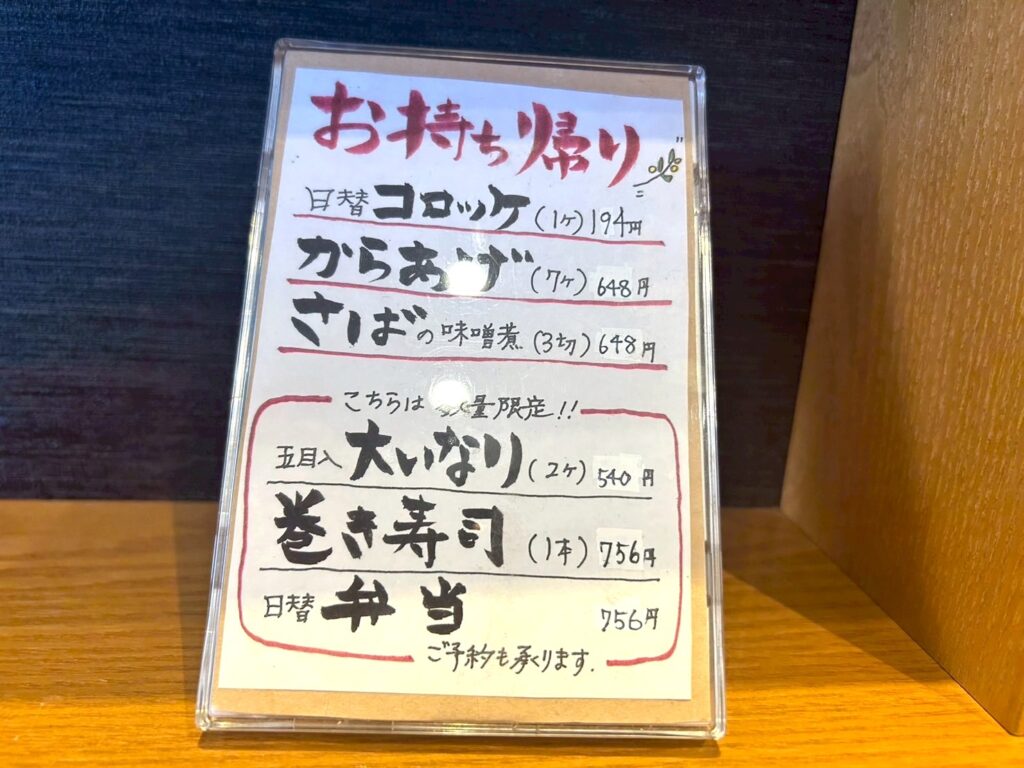 お持ち帰り
日替コロッケ(1ヶ)194円
からあげ(7ヶ)648円
さばの味噌煮(3切)648円
こちらは数量限定!!
五目入大いなり(2ヶ)540円
巻き寿司(1本)756円
日替弁当 756円
ご予約も承ります.